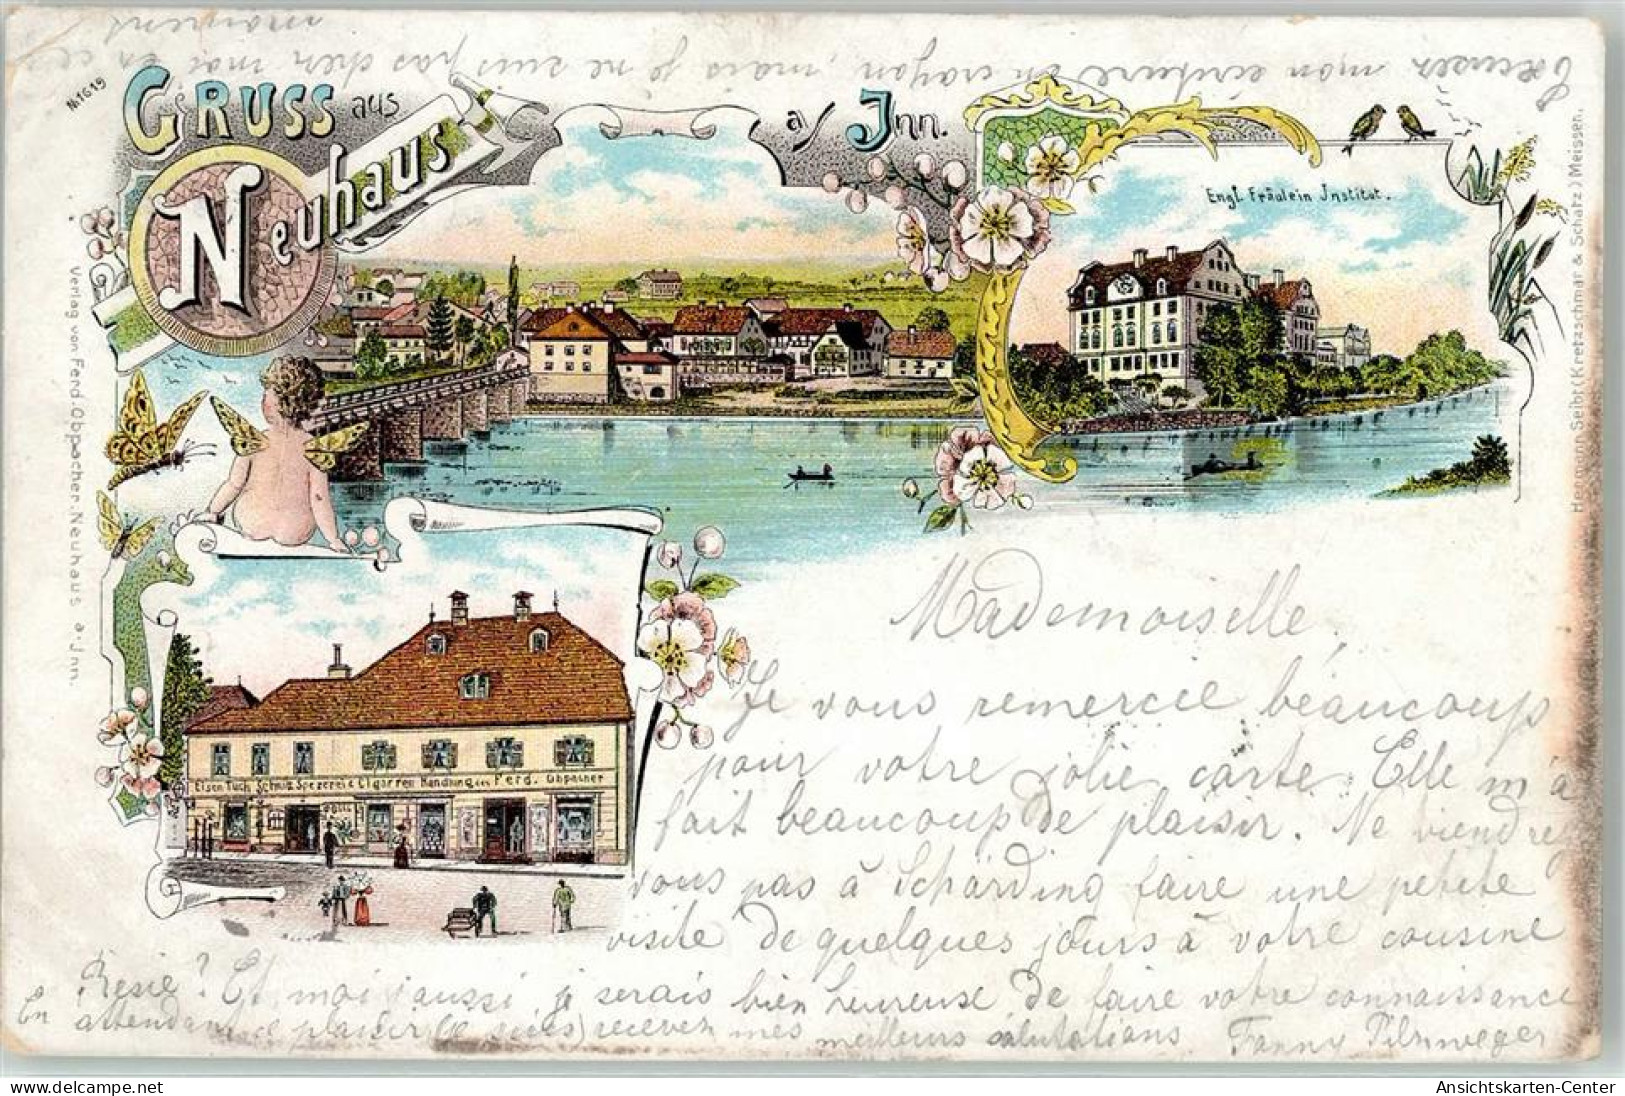 Excusez mon écriture en crayon, mais je ne suis pas chez moi en ce
moment
№ 1619
GRUSS aus
Neuhaus
a/ Inn.
Engl. Fräulein Institut.
Verlag von Ferd. Obpacher. Neuhaus a. Inn.
Hermann Seibt (Kretzschmar & Schatz) Meissen.
Eisen Tuch Schnitt Spezerei & Cigarren Handlung von Ferd. Obpacher
Mademoiselle.
Je vous remercie béaucoup
pour votre jolie carte. Elle m'a
fait beaucoup de plaisir. Ne viendrez
vous pas à Schärding faire une petite
visite de quelques jours à votre cousine
Resie? Et moi aussi, je serais bien heureuse de faire votre connaissance
En attendant ce plaisir recevez mes meilleurs salutations Fanny Pilzweger
www.delcampe.net
Ansichtskarten-Center